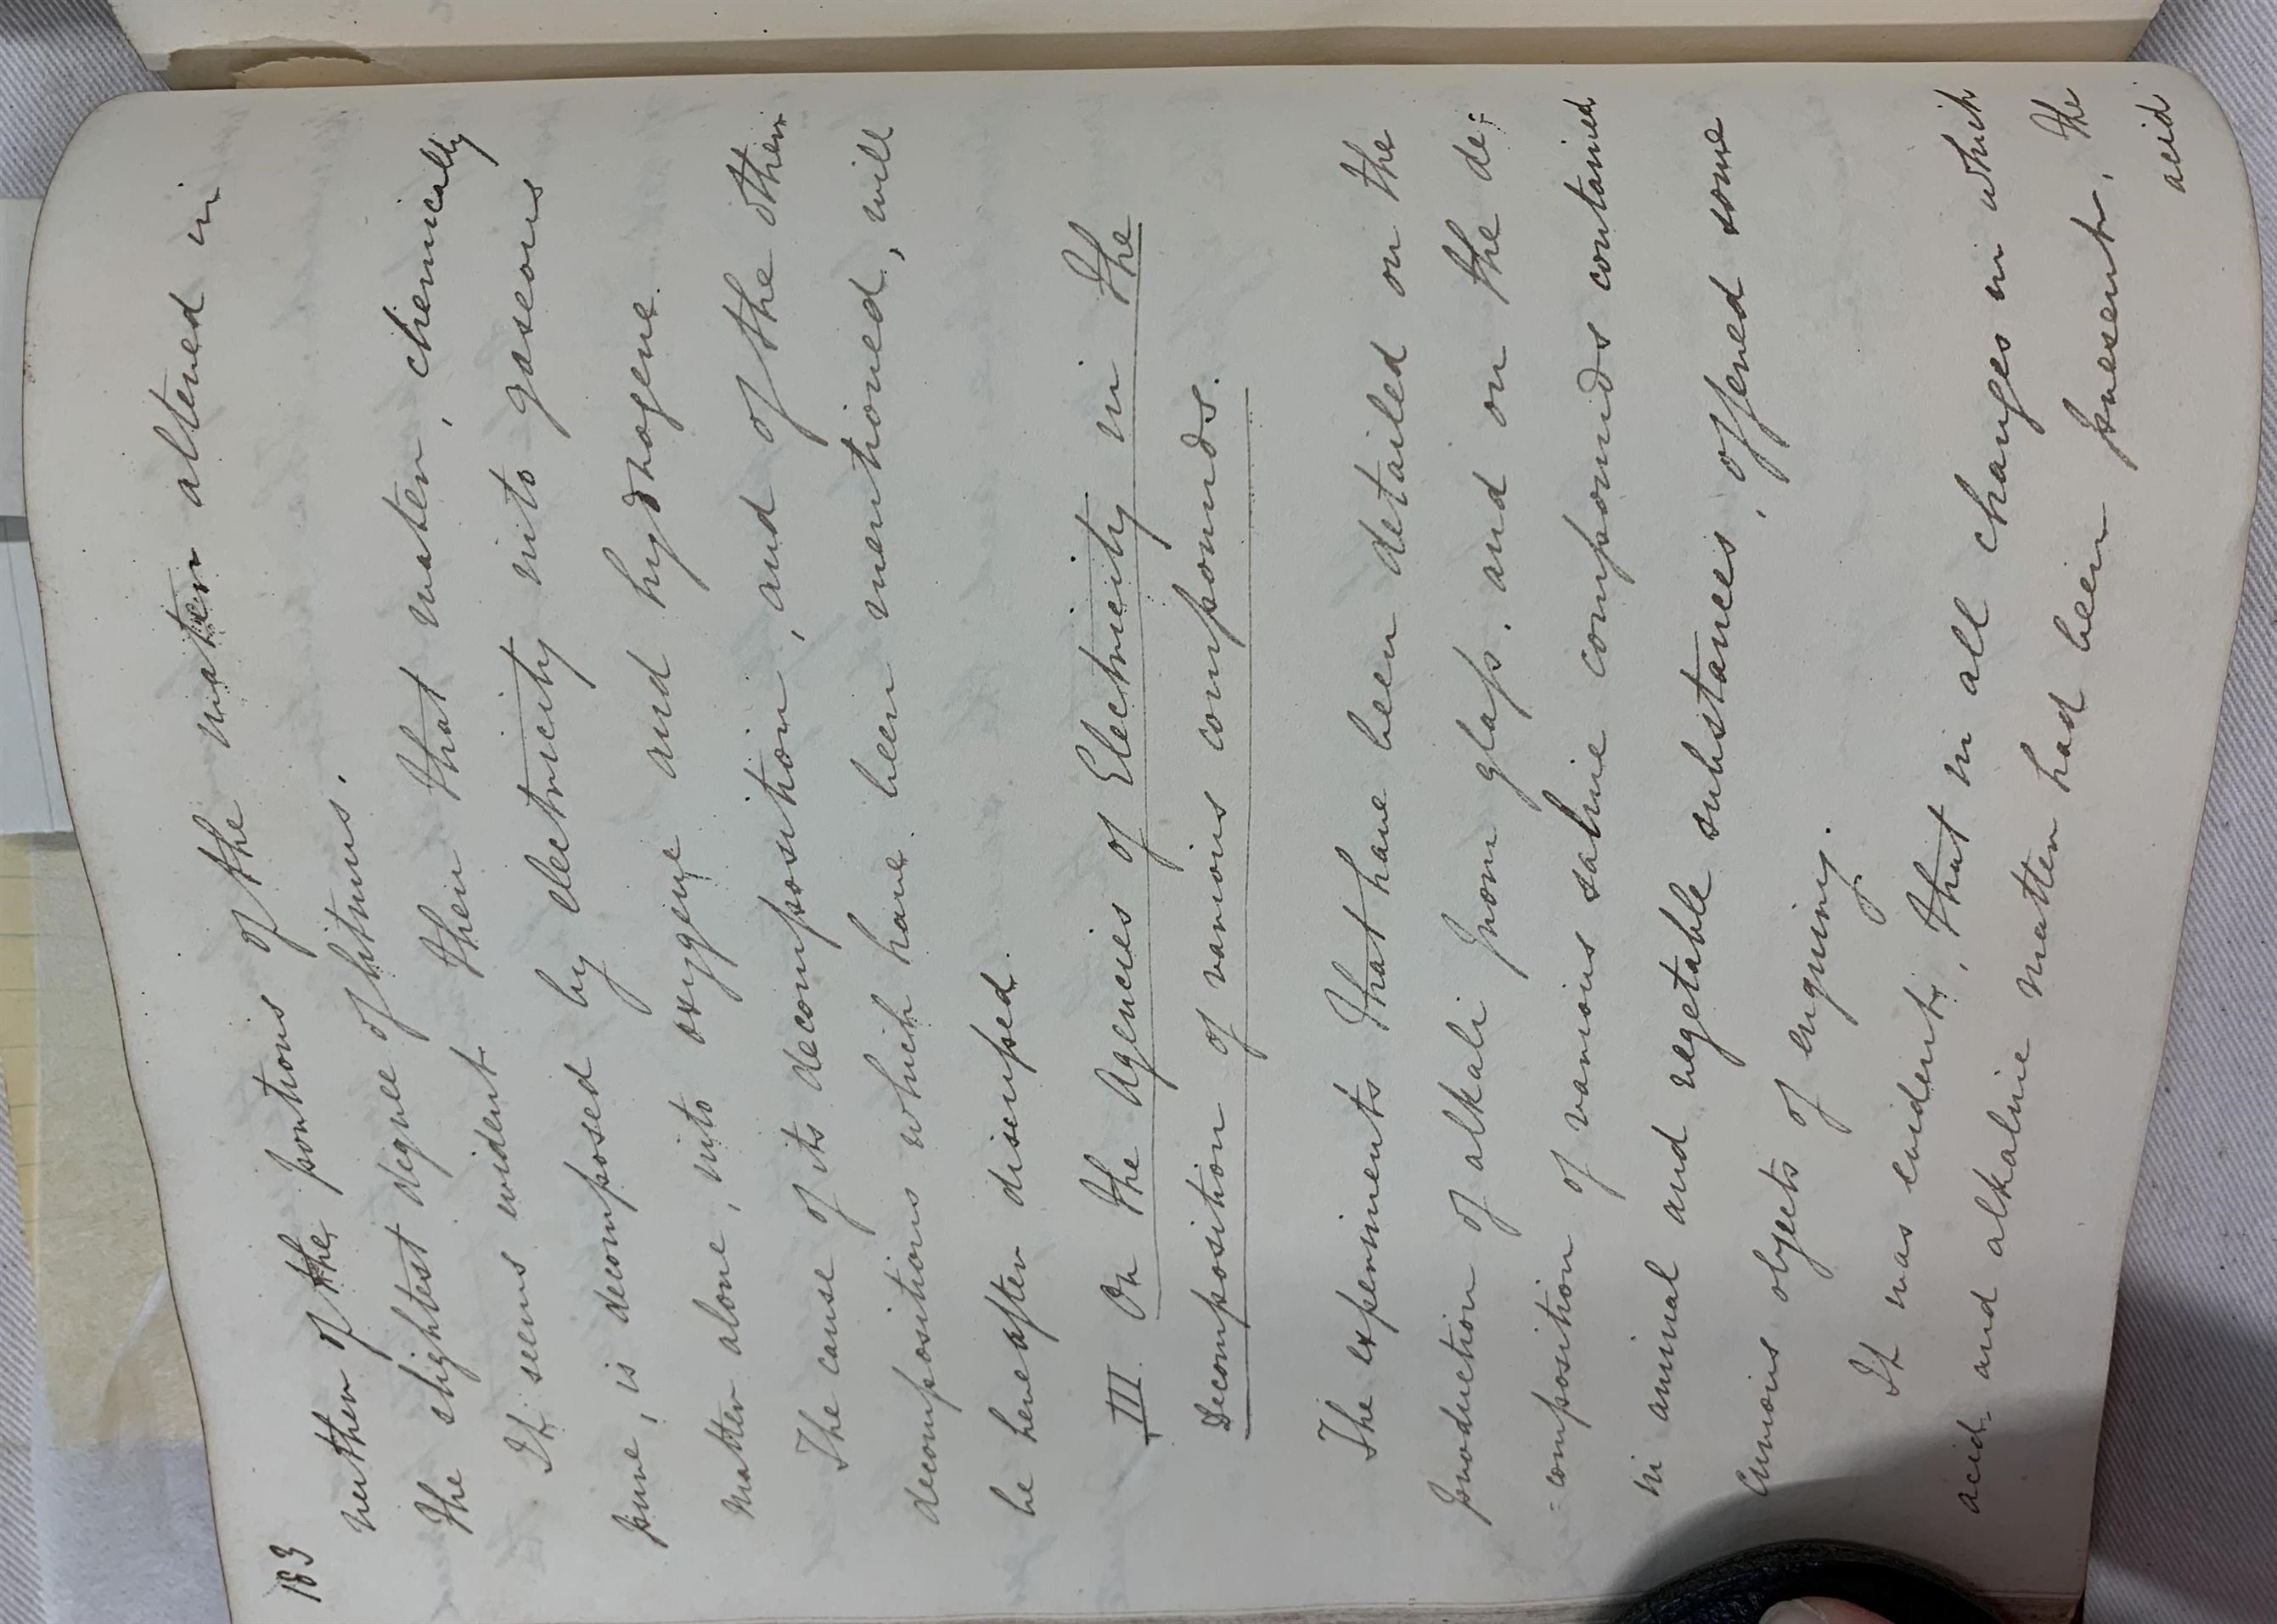 183
neither of the portions of the water altered in
the slightest degree of litmus.
It seems evident then that water, chemically
pure, is decomposed by electricity into gaseous
matter alone, into oxygene and hydrogene.
The cause of its decomposition, and of the other
decompositions which have been mentioned, will
be hereafter discussed.
III. On the Agencies of Electricity in the
Decomposition of various compounds.
The experiments that have been detailed on the
production of alkali from glass, and on the de=
=composition of various saline compounds contained
in animal and vegetable substances, offered some
curious objects of enquiry.
It was evident, that in all changes in which
acid and alkaline matter had been present, the
acid